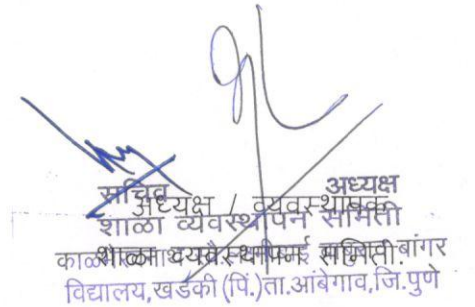 सचिव अध्यक्ष
अध्यक्ष / व्यवस्थापक
शाळा व्यवस्थापन समिती
शाळा व्यवस्थापन समिती.
बांगर
विद्यालय,खडकी (पिं.)ता.आंबेगाव,जि.पुणे